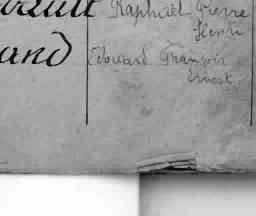 Raphaël Pierre
Henri
and Edouard François
Ernest